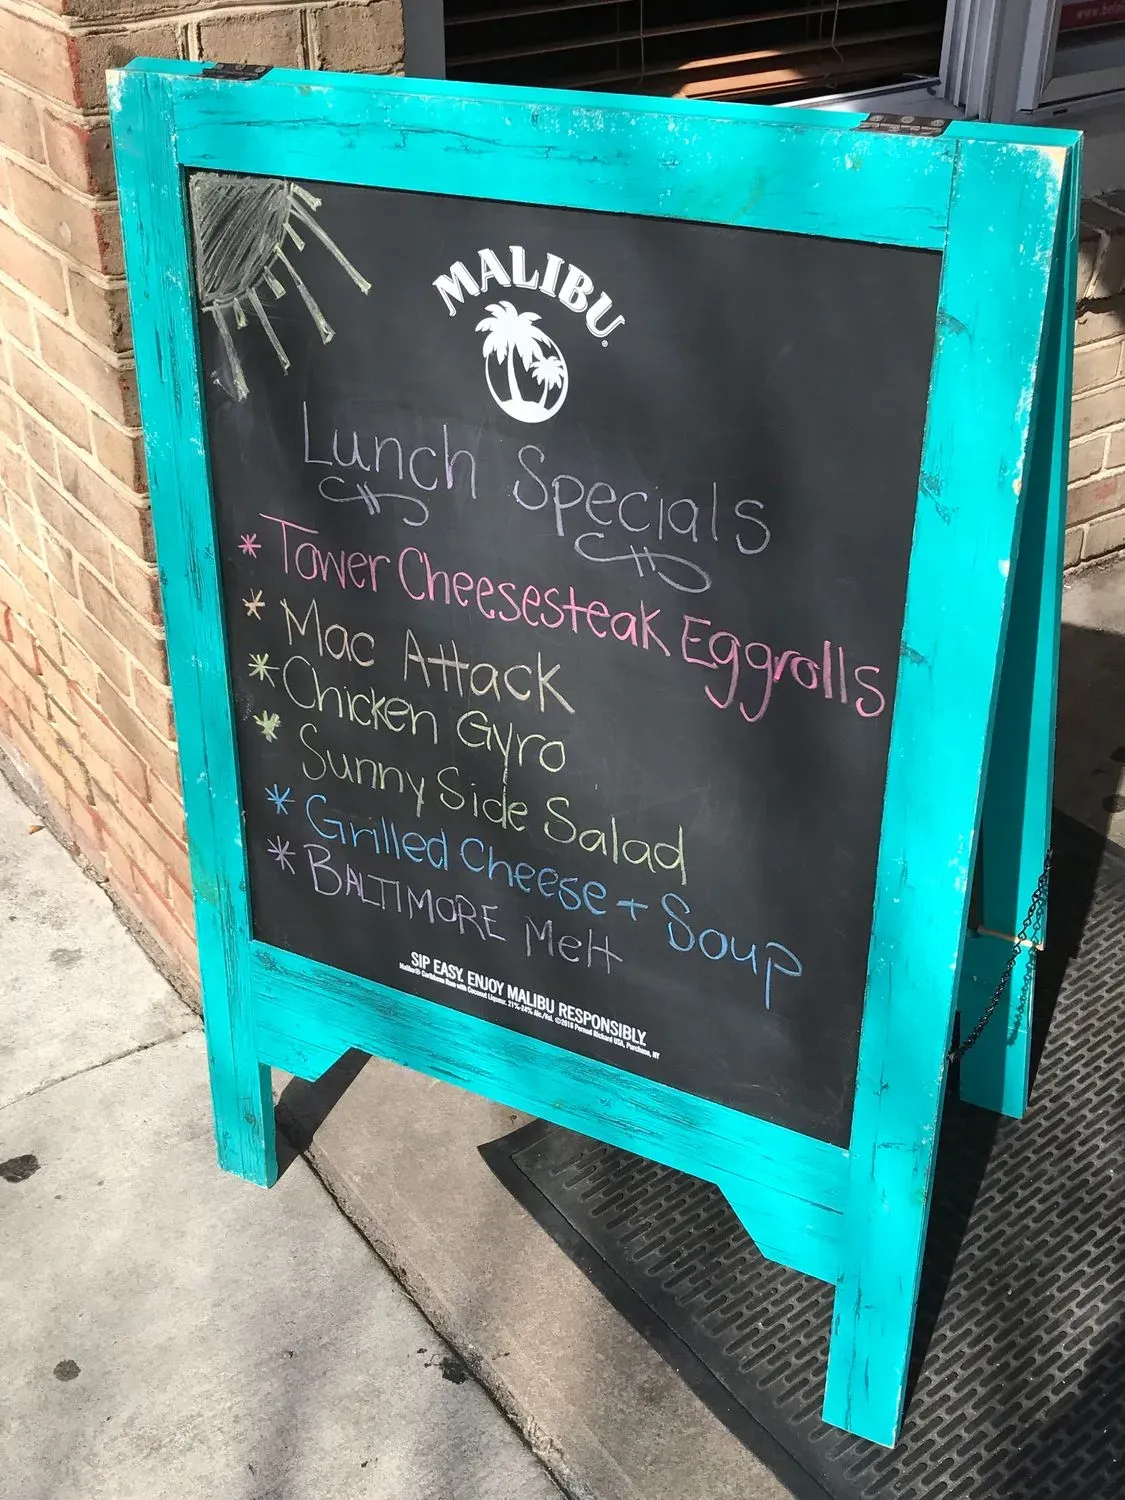 MALIBU®
Lunch Specials
* Tower Cheesesteak Eggrolls
* Mac Attack
* Chicken Gyro
* Sunny Side Salad
* Grilled Cheese + Soup
* BALTIMORE Melt
SIP EASY. ENJOY MALIBU RESPONSIBLY.
Malibu® Caribbean Rum with Coconut Liqueur. 21%-24% Alc./Vol. ©2016 Pernod Ricard USA, Purchase, NY